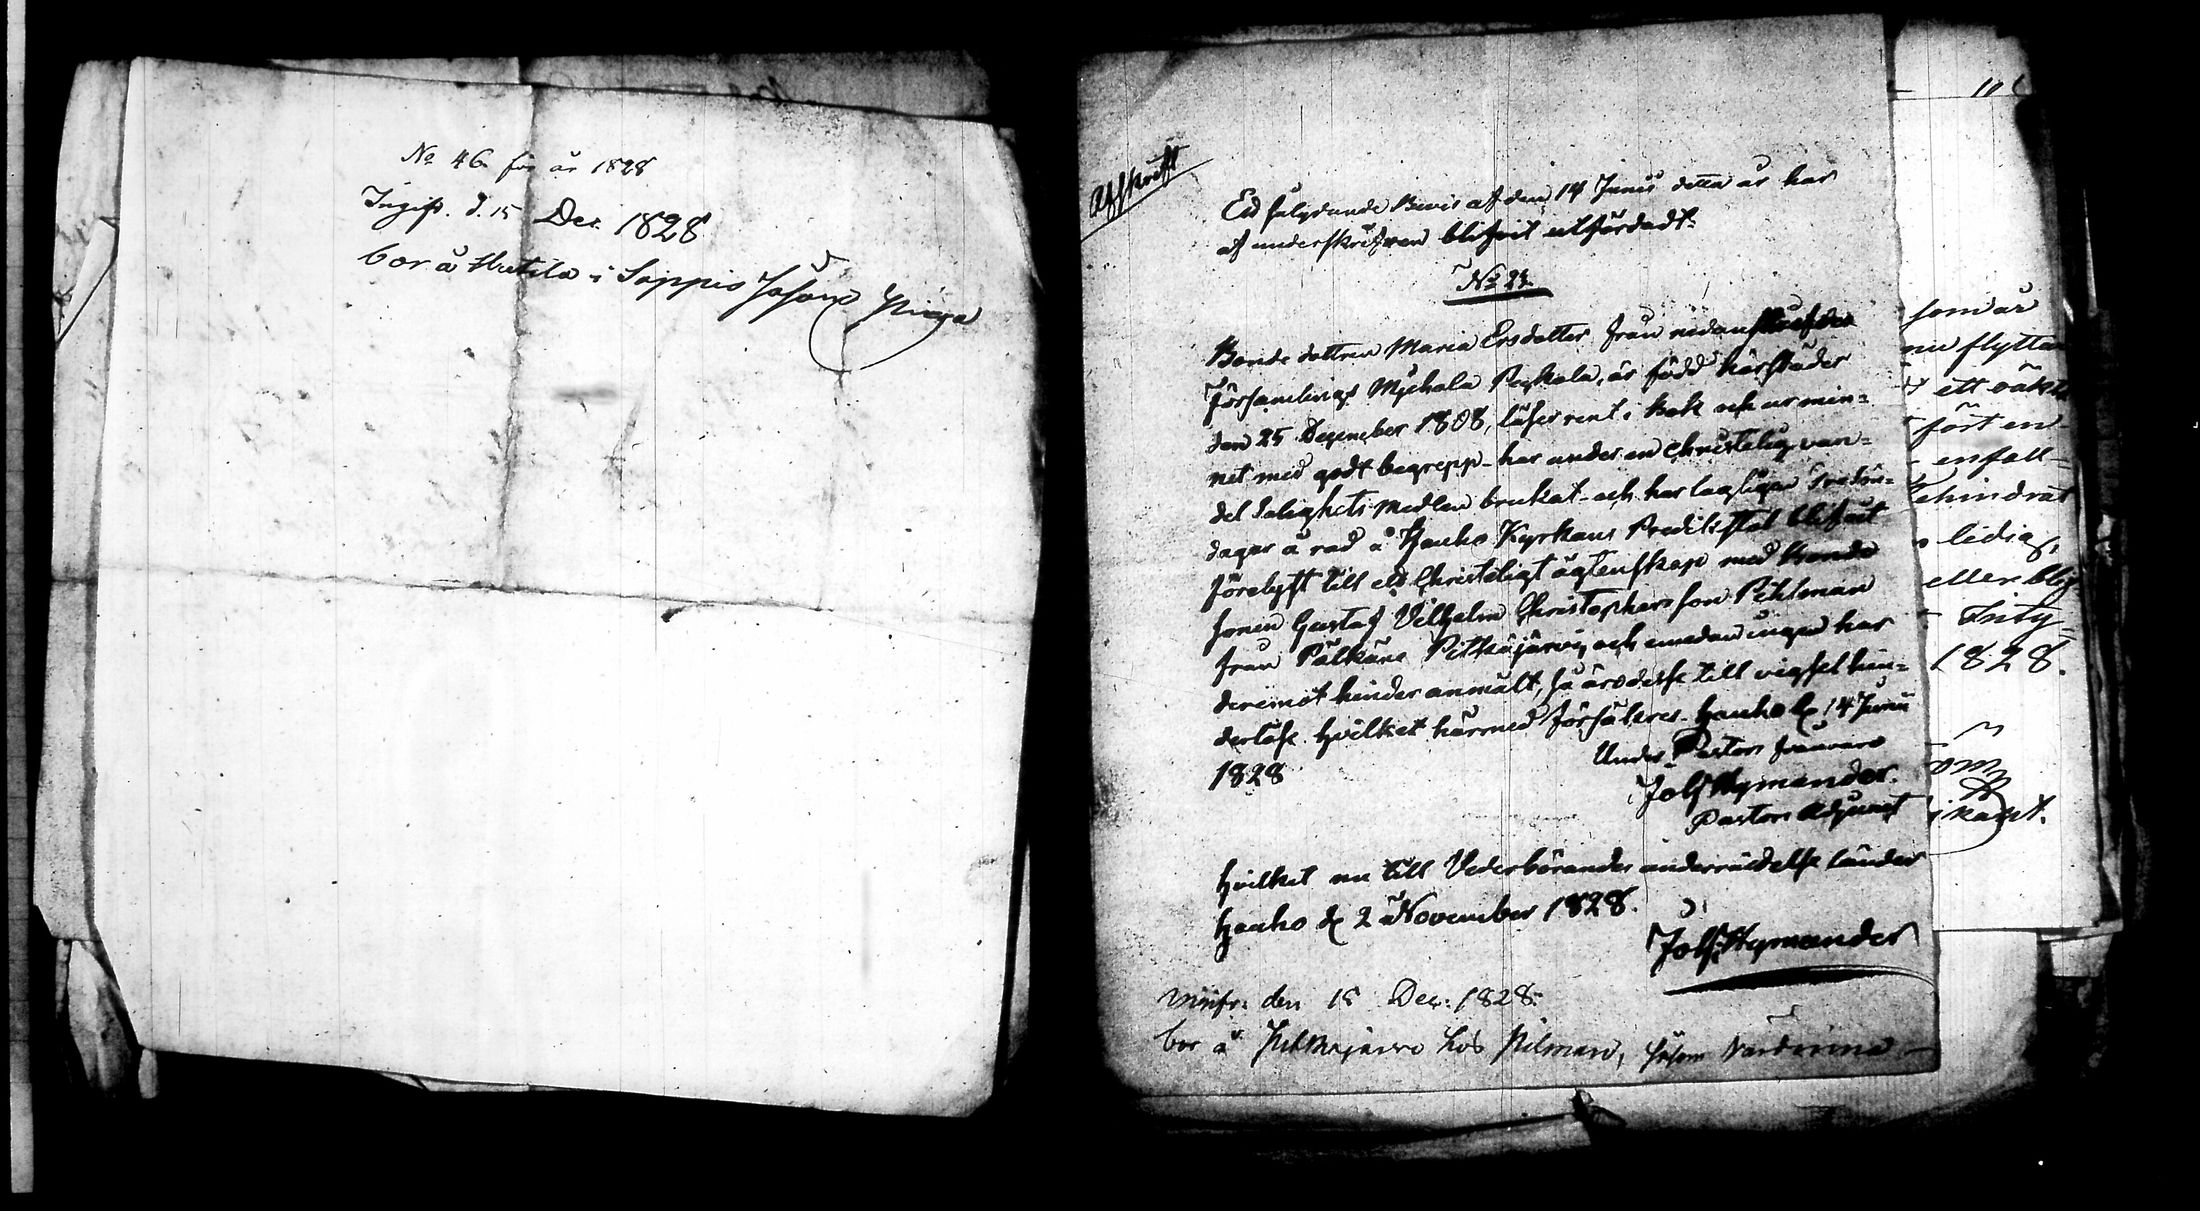 No 46 för år 1828
Ingift. d. 15 Dec. 1828
bor å Hutila i Sappis såsom Piga
Afskrift
Ett följande Bevis af den 14 Junii detta år har
af underskrifven blifvit utfärdadt.
No 23.
Bonde dottren Maria Ersdotter från nedanskrefne
Församlings Myhala Peykola, är född härstädes
den 25 December 1808, läser rent i bok och ur min=
net med godt begrepp - har under en christelig van=
del Salighets medlen brukat - och har lagligen Trenne
dagar å rad å Hauho Kyrkans Predikstol blifvit
förelyst till ett Christeligt ägtenskap med Bonde
sonen Gustaf Vilhelm Christophersson Pihlman
från Pälkäne Pitkäjärvi, och emedan ingen har
deremot hinder anmält, så är dess till vigsel hin=
derlöse. Hvilket härmed försäkres. Hauho d. 14 Junii
1828
Under Pastors frånvaro
Johs Hymander.
Pastors Adjunct
Hvilket nu till Vederbörandes underrättelse länder
Hauho d. 2 November 1828.
Joh: Hymander
Innfr: den 15 Dec: 1828.
bor å Pitkäjärvi hos Pilman, såsom Värdinna
106
som är
nu flytta
ett
fört en
enfall=
ehindrat
ledig,
eller blif
Intyg=
1828.
ikant.